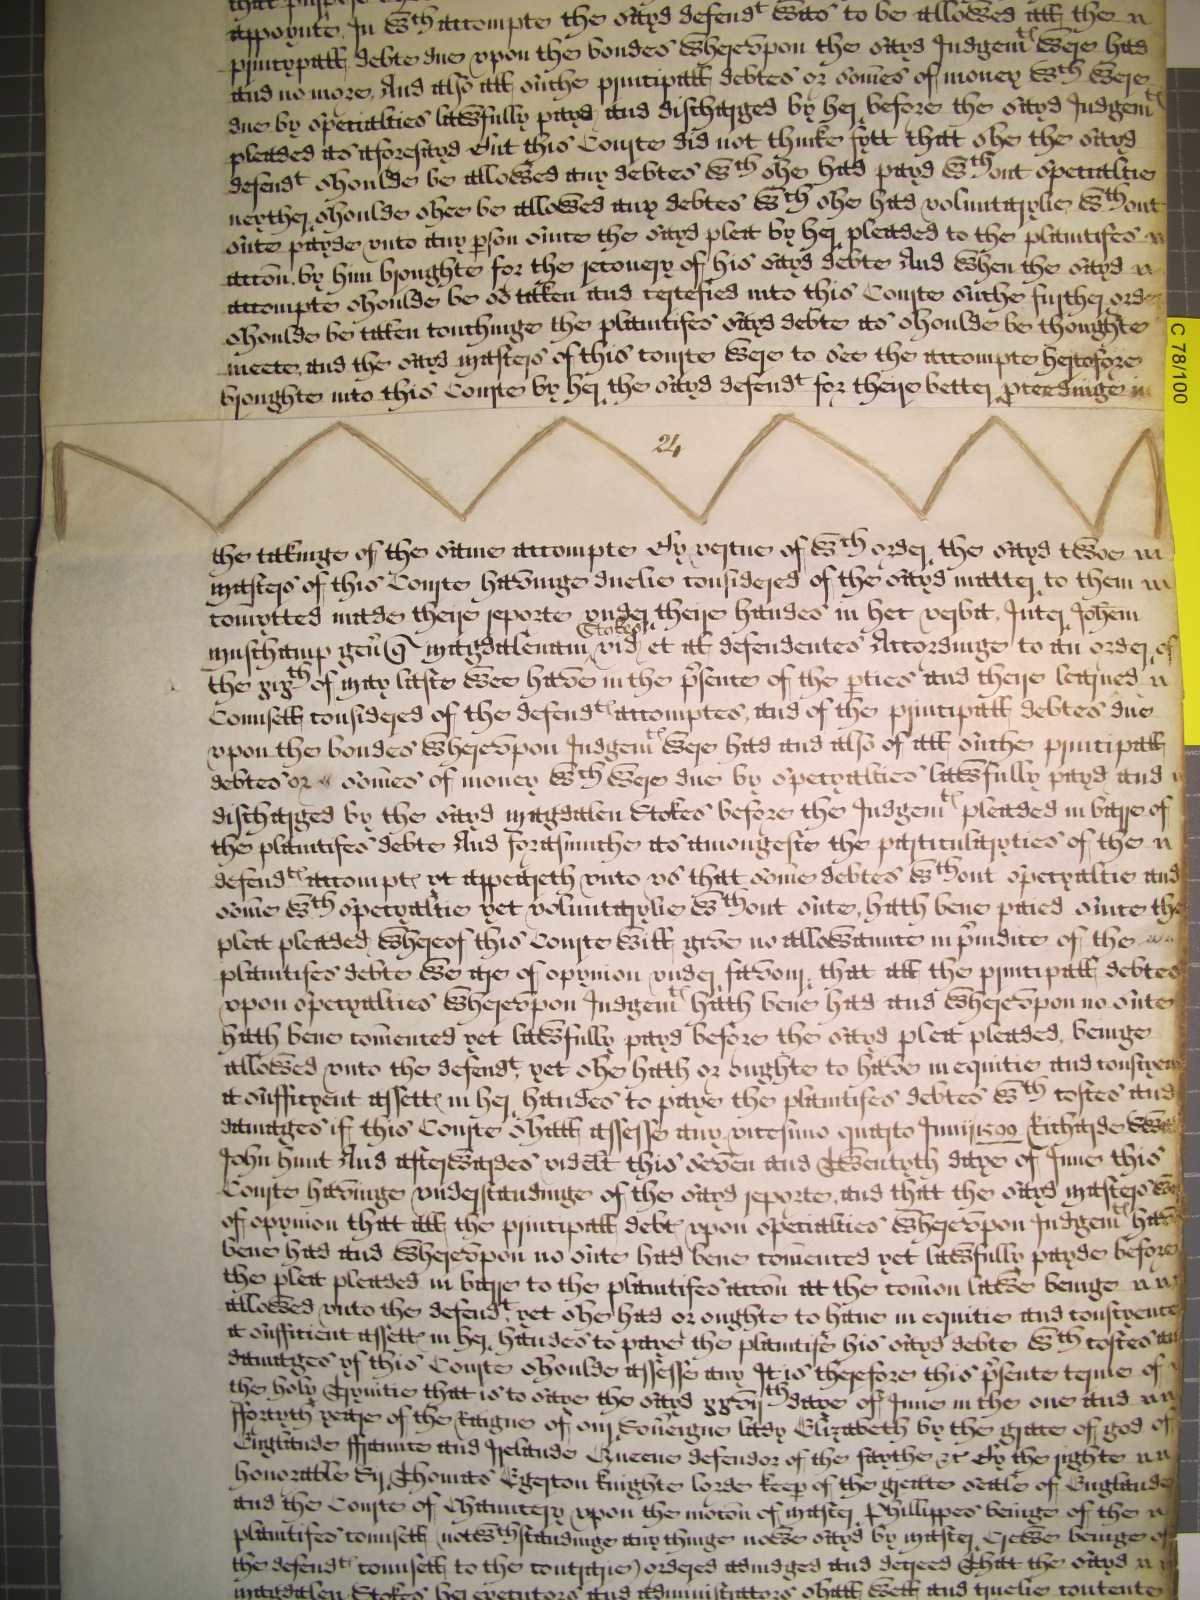 appoynte. In wch accompte the sayd defendt was to be allowed all the
princypall debte due vpon the bondes wherevpon the sayd Judgemtes were had
and no more. And also all suche principall debtes or somes of money wch were
due by specialties lawfully payd and discharged by her before the sayd Judgemtes
pleaded as aforesayd But this Courte did not thinke fytt that she the sayd
defendt shoulde be allowed any debtes wch she had payd wthout specialtie
neyther shoulde shee be allowed any debtes wch she had voluntarylie wthout
suite payde vnto any pson since the sayd plea by her pleaded to the plaintifes
accon by him broughte for the recovery of his sayd debte And when the sayd
accompte shoulde be so taken and certefied into this Courte suche further order
shoulde be taken touchinge the plaintifes sayd debte as shoulde be thoughte
meete, and the sayd masters of this courte were to see the accompte heretofore
broughte into this Courte by her the sayd defendt for theire better pceedinge in
C 78/100
24
the takinge of the same accompte By vertue of wch order the sayd twoe
masters of this Courte havinge duelie considered of the sayd matter to them
comytted made theire reporte vnder theire handes in hec verba. Inter Johem
Muschamp gen q Magdalenam Stokes vid et al defendentes Accordinge to an order of
the xixth of may laste wee have in the psence of the pties and theire learned
Counsell considered of the defendtes accomptes, and of the principall debtes due
vpon the bondes wherevpon Judgemtes were had and also of all suche principall
debtes or somes of money wch were due by specyalties lawfully payd and
discharged by the sayd Magdalen Stokes before the Judgemtes pleaded in barre of
the plaintifes debte And forasmuche as amongeste the particularyties of the
defendtes accomptes yt appeareth vnto vs that some debtes wthout specyaltie and
some wth specyaltie yet voluntarylie wthout suite, hath bene paied since the
plea pleaded, whereof this Courte will give no allowance in piudice of the
plaintifes debte we are of opynion vnder favour, that all the principall debtes
vpon specyalties wherevpon Judgemt hath bene had and wherevpon no suite
hath bene comenced yet lawfully payd before the sayd plea pleaded, beinge
allowed vnto the defendt, yet she hath or oughte to have in equitie and conscyence
a sufficyent assettes in her handes to paye the plaintifes debtes wth costes and
damages if this Courte shall assesse any. vicesimo quarto Junij 1599 Richarde
John hunt And afterwardes videlt this seven and Twentyth daye of June this
Courte havinge vnderstandinge of the sayd reporte, and that the sayd masters were
of opynion that all the principall debtes vpon specialties wherevpon Judgemtes have
bene had and wherevpon no suite had bene comenced yet lawfully payde before
the plea pleaded in barre to the plaintifes accon at the comon lawe beinge
allowed vnto the defendt, yet she had or oughte to haue in equitie and conscyence
a sufficient assettes in her handes to paye the plaintife his sayd debte wth costes and
damages yf this Courte shoulde assesse any It is therefore this psente terme of
the holy Trynitie that is to saye the sayd xxvijth daye of June in the one and
ffortyth yeare of the Raigne of our Soueigne lady Elizabeth by the grace of god of
Englande ffraunce and Irelande Queene defendor of the faythe &c By the righte
honorable Sr Thomas Egerton knighte lorde keep of the greate seale of Englande
and the Courte of Chauncery vpon the mocon of master Phillippes beinge of the
plaintifes counsell (notwthstandinge any thinge nowe sayd by master Crewe beinge of
the defendtes counsell to the contrarie) ordered adiudged and decreed That the sayd
Magdalen Stokes her executors and administrators shall well and truelie contente